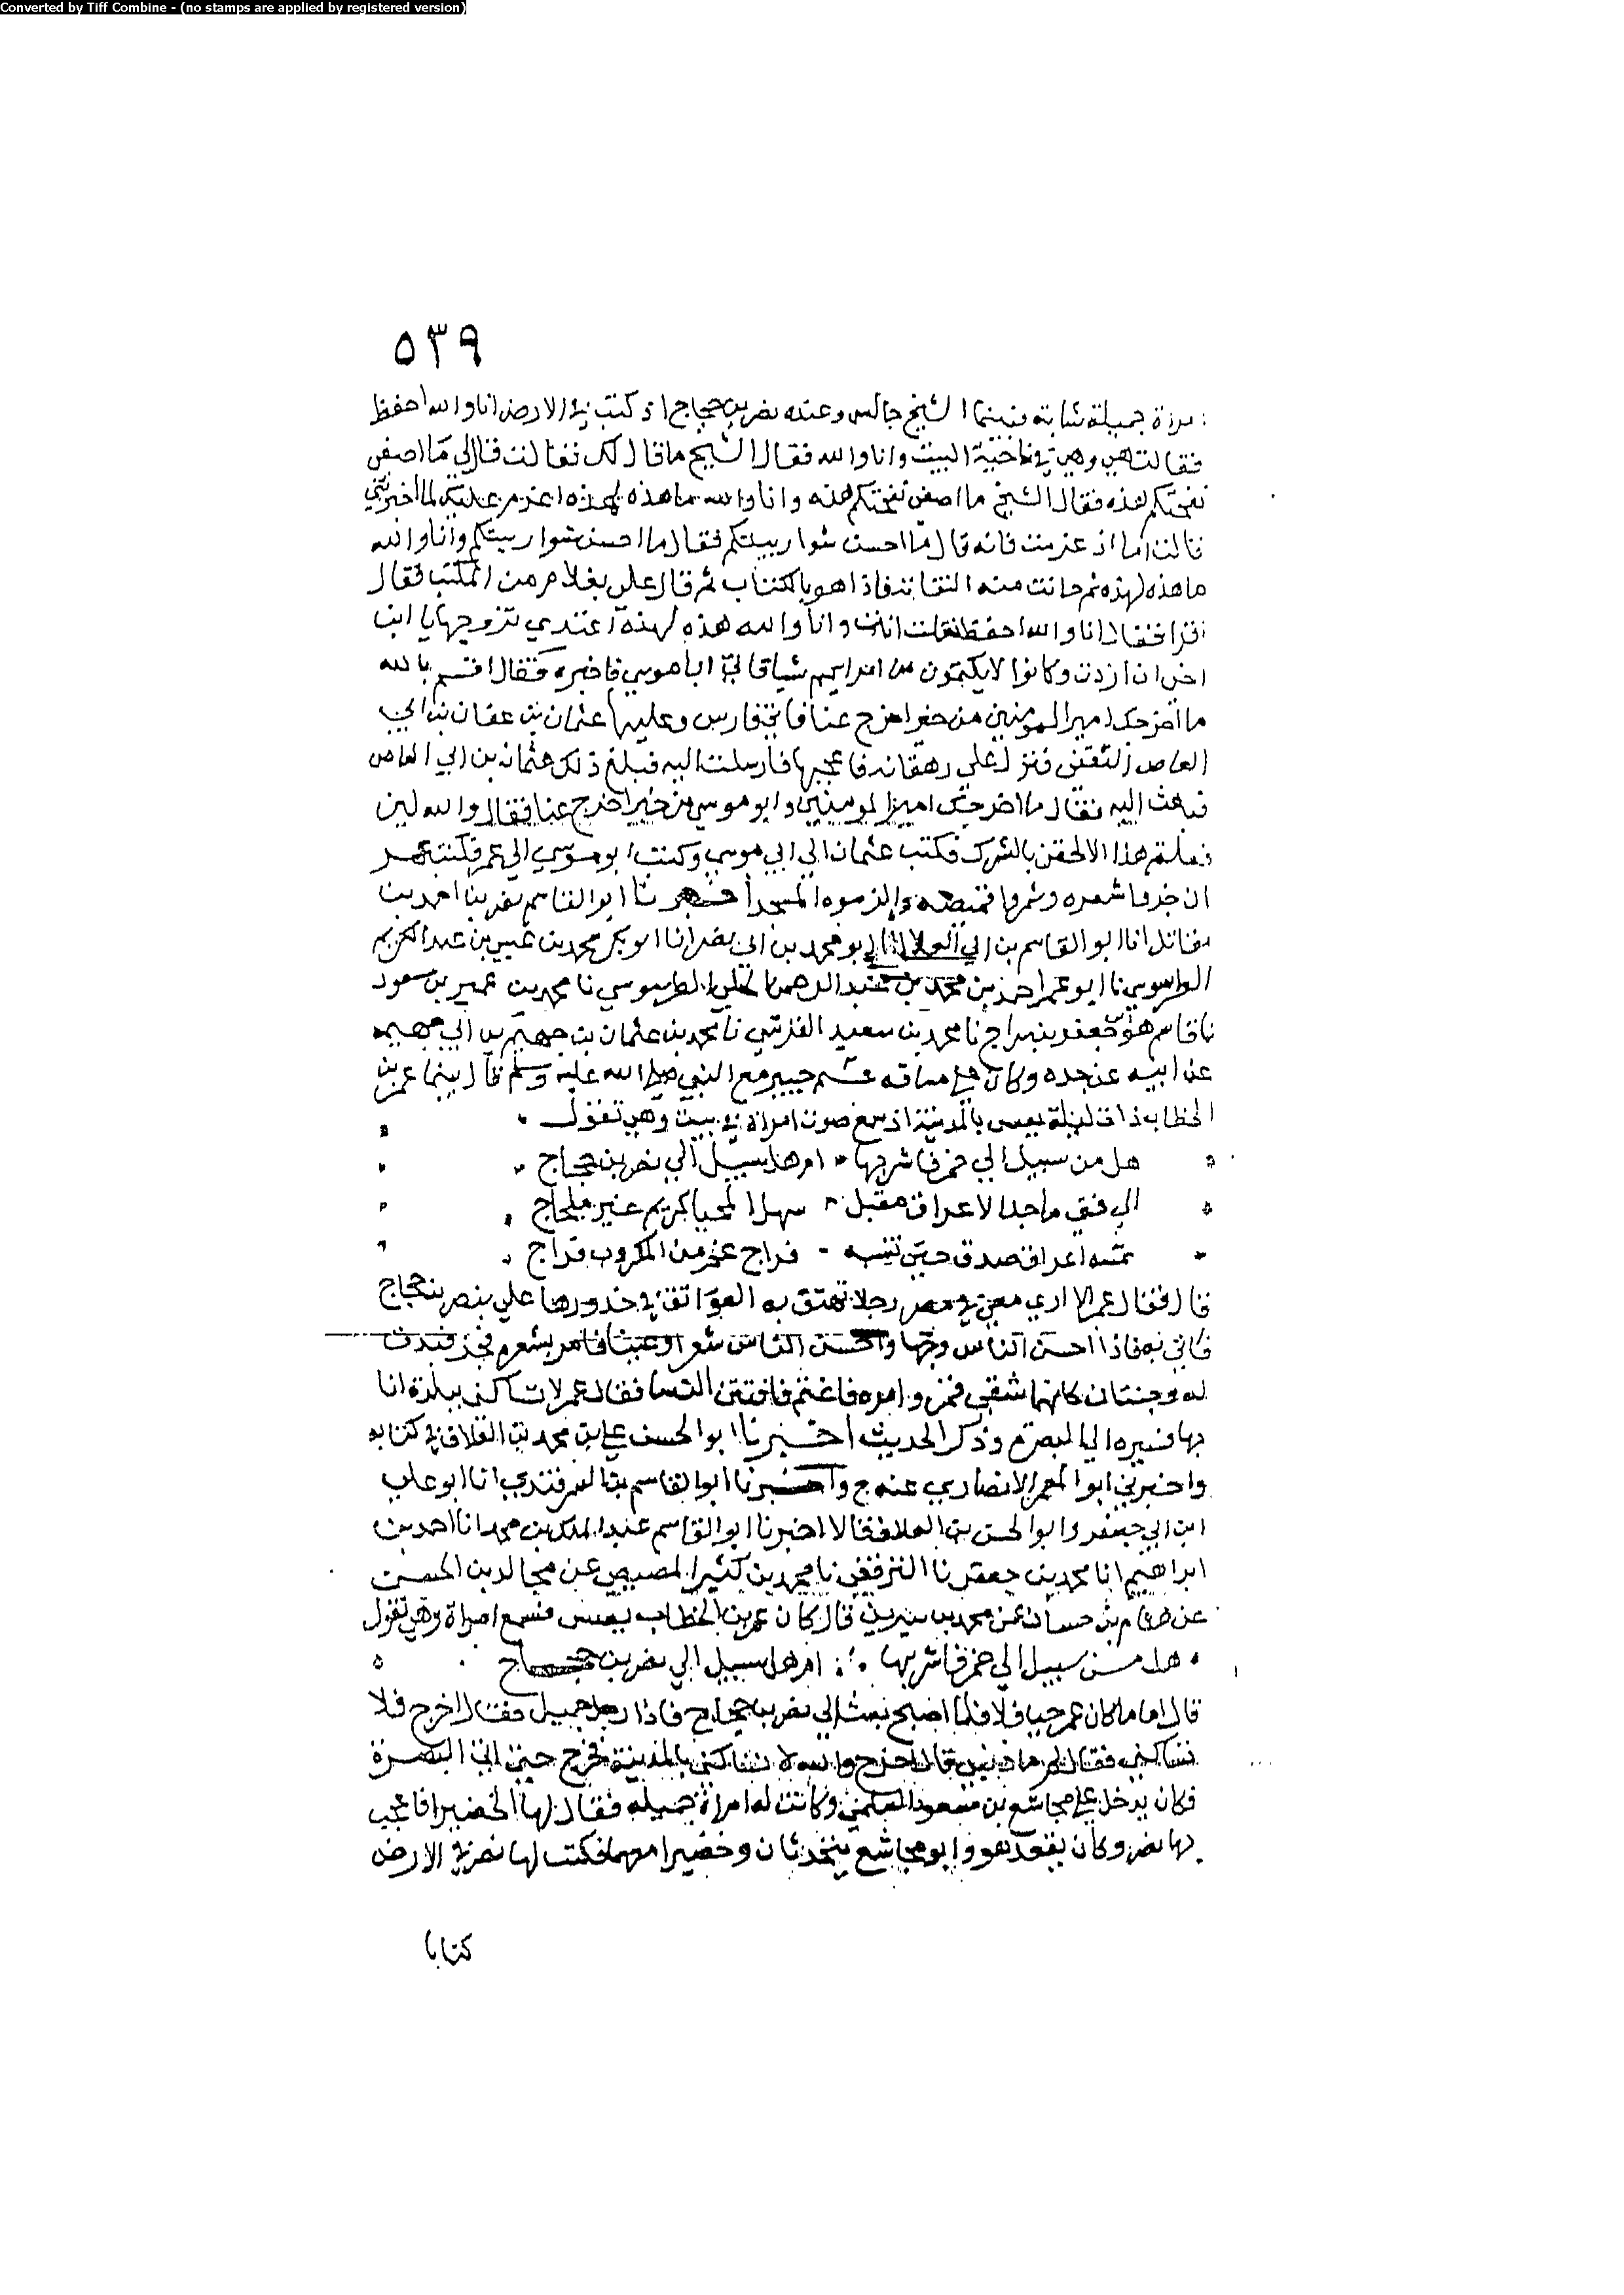 Converted by Tiff Combine - (no stamps are applied by registered version)
٥٣٩
امراة جميلة شابة فبينما الشيخ جالس وعنده نصر بن حجاج اذ كتب في الارض انا والله احفظ
فقالت هي وهي في ناحية البيت وانا والله فقال الشيخ ما قال لك فقالت قال لي ما اصفى
لقحتكم هذه فقال الشيخ ما اصفى لقحتكم هذه وانا والله ما هذه لهذه اعزم عليك لما اخبرتني
قالت اما اذ عزمت فانه قال ما احسن شوار بيتكم فقال ما احسن شوار بيتكم وانا والله
ما هذه لهذه ثم حانت منه التفاتة فاذا هو بالكتاب ثم قال علي بغلام من المكتب فقال
اقرا فقال انا والله احفظ فقلت انت وانا والله هذه لهذه اعتدي تزوجها يا ابن
اخي ان اردت وكانوا لا يكتمون من امرايهم شيا فاتى ابا موسي فاخبره فقال اقسم بالله
ما اخرجك امير المومنين من خير اخرج عنا فاتى فارس وعليها عثمان بن عفان بن ابي
العاص الثقفي فنزل علي دهقانة فاعجبها فارسلت اليه فبلغ ذلك عثمان بن ابي العاص
فبعث اليه فقال ما اخرجك امير المومنين وابو موسي من خير اخرج عنا فقال والله لين
فعلتم هذا لالحقن بالشرك فكتب عثمان الي ابي موسي وكتب ابو موسي الي عمر فكتب عمر
ان جزوا شعره وشمروا قميصه والزموه المسجد اخبرنا ابو القاسم نصر بن احمد بن
مقاتل انا ابو القاسم بن ابي العلا انا ابو محمد بن ابي نصر انا ابو بكر محمد بن عيسي بن عبد الكريم
الطرسوسي نا ابو عمر احمد بن محمد بن عبد الرحمن الحلي الطرسوسي نا محمد بن عمير بن مسعود
نا قاسم هو جعفر بن سراج نا محمد بن سعيد القرشي نا محمد بن عثمان بن جهيم بن ابي جهيمة
عن ابيه عن جده وكان علي ساقة غنم خيبر مع النبي صلى الله عليه وسلم قال بينما عمر بن
الخطاب ذات ليلة يعس بالمدينة اذ سمع صوت امراة في بيت وهي تقول
هل من سبيل الي خمر فاشربها ام هل سبيل الي نصر بن حجاج
الي فتى ماجد الاعراق مقبل سهل المحيا كريم غير ملجاج
تمته اعراق صدق حين تنسبه فراج عمز من المكروب فراج
قال فقال عمر الا اري معي في مصر رجلا تهتف به العواتق في خدورها علي بنصر بن حجاج
فاتي به فاذا احسن الناس وجها واحسن الناس شعرا وعينا فامر بشعره فجز فبدت
له وجنتان كانهما شقي قمر وامره فاعتم فافتتن النسا فقال عمر لا تساكني ببلدة انا
بها فسيره الي البصرة وذكر الحديث اخبرنا ابو الحسن علي بن محمد بن العلاف في كتابه
واخبرني ابو المعمر الانصاري عنه ح واخبرنا ابو القاسم بن السمرقندي انا ابو علي
ابن ابي جعفر وابو الحسن بن العلاف قالا اخبرنا ابو القاسم عبد الملك بن محمد انا احمد بن
ابراهيم انا محمد بن جعفر نا الترقفي نا محمد بن كثير المصيصي عن مخالد بن الحسين
عن هشام بن حسان عن محمد بن سيرين قال كان عمر بن الخطاب يعس فسمع امراة وهي تقول
هل من سبيل الي خمر فاشربها ام هل سبيل الي نصر بن حجاج
قال اما ما كان عمر حيا فلا فلما اصبح بعث الي نصر بن حجاج فاذا رجل جميل فقال اخرج فلا
تساكني فقال لم ما ذنبي قال اخرج والله لا تساكني بالمدينة فخرج حتى اتى البصرة
فكان يدخل علي مجاشع بن مسعود السلمي وكانت له امراة جميله فقال لها الخضيرا فاعجب
بها نصر وكان يقعد هو وابو مجاشع يتحدثان وخضيرا معهما فكتب لها نصر في الارض
كتابا